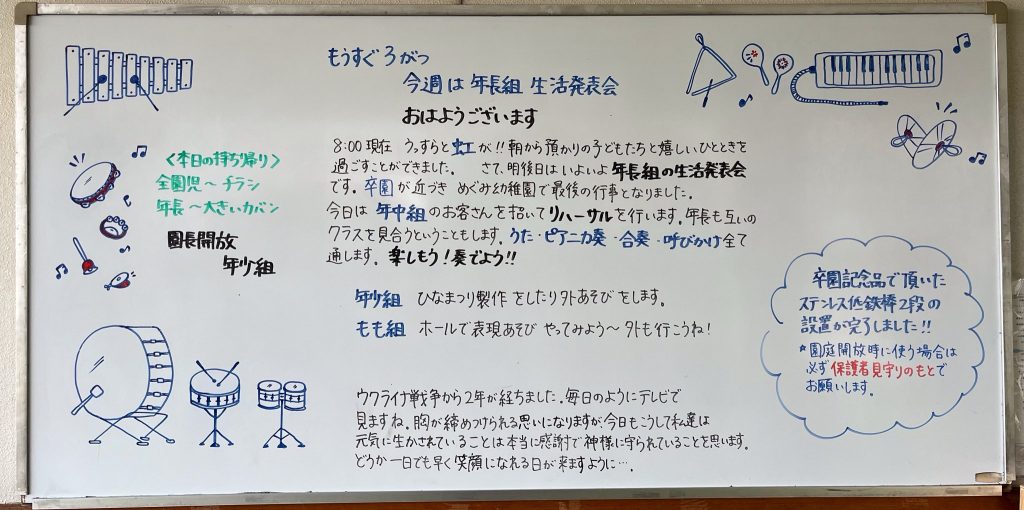 もうすぐ3がつ
今週は 年長組 生活発表会
おはようございます
8:00 現在 うっすらと虹が!! 朝から預かりの子どもたちと嬉しいひとときを
過ごすことができました。 さて、明後日は いよいよ 年長組の生活発表会
です。卒園が近づき めぐみ幼稚園で最後の行事となりました。
今日は 年中組のお客さんを招いてリハーサルを行います。年長も互いの
クラスを見合うということもします。うた・ピアニカ奏・合奏・呼びかけ全て
通します。楽しもう！奏でよう!!
年少組 ひなまつり製作をしたり外あそびをします。
もも組 ホールで表現あそび やってみよう～外も行こうね!
ウクライナ戦争から2年が経ちました。毎日のようにテレビで
見ますね。胸が締めつけられる思いになりますが、今日もこうして私達は
元気に生かされていることは本当に感謝で神様に守られていることを思います。
どうか一日でも早く笑顔になれる日が来ますように…。
〈本日の持ち帰り〉
全園児～チラシ
年長～大きいカバン
園長開放
年少組
卒園記念品で頂いた
ステンレス低鉄棒2段の
設置が完了しました!!
*園庭開放時に使う場合は
必ず保護者見守りのもとで
お願いします。